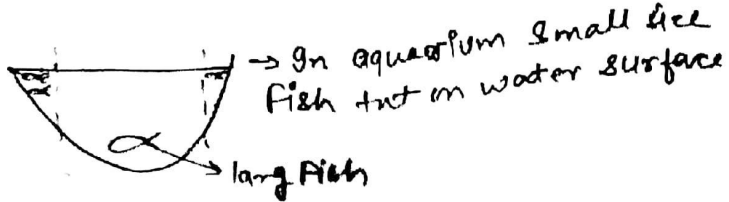 → In aquarium small size
Fish tnt on water surface
larg Fish